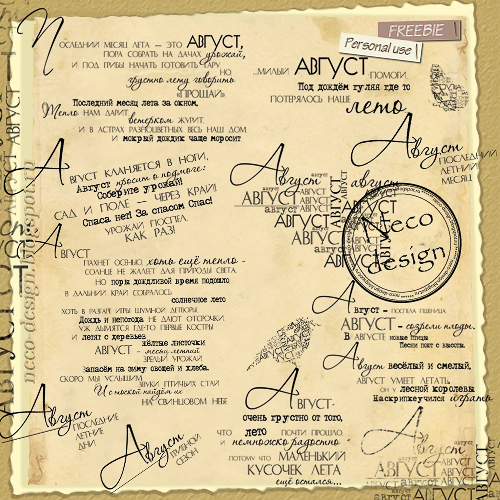 FREEBIE
Personal use
Последний месяц лета — это АВГУСТ,
Пора собрать на дачах урожай,
И под грибы начать готовить тару
Но
грустно лету говорить
"ПРОЩАЙ!"
Последний месяц лета за окном,
Тепло нам дарит
ветерком журит
И в астрах разноцветных весь наш дом
И мокрый дождик чаще моросит
...милый АВГУСТ помоги,
Под дождём гуляя где то
Потерялось наше
лето
Август
последний
летний
месяц
Август кланяется в ноги,
Август просит о подмоге:
Соберите урожай!
Сад и поле — через край!
Спаса не! За спасом Спас!
Урожай поспел.
КАК РАЗ!
Август
август
АВГУСТ
август
АВГУСТ
август
АВГУСТ
Neco
design
neco-design.blogspot.com
Август
Пахнет осенью, хоть ещё тепло -
Солнце не жалеет для природы света.
Но поры дождливой время подошло
В дальний край собралось
солнечное лето
Хоть в разгаре игры шумной детворы
Дождь и непогода не дают отсрочки
Уж дымятся где-то первые костры
И летят с деревьев
жёлтые листочки
АВГУСТ - месяц летний
Зрелый урожай
Запасём на зиму овощей и хлеба.
Скоро мы услышим
Звуки птичьих стай
И с тоской найдём их
На свинцовом небе
Август –
поспела пшеница,
АВГУСТ - созрели плоды.
В АВГУСТЕ новые птицы
Песни поют с высоты.
Август весёлый и смелый,
АВГУСТ умеет летать.
Он у лесной королевы
На скрипке учился играть.
Август
последние
летние
дни
Август
грибной
сезон
Август-
очень грустно от того,
что лето почти прошло
и немножко радостно
потому что маленький
КУСОЧЕК ЛЕТА
ещё остался...
АВГУСТ
август